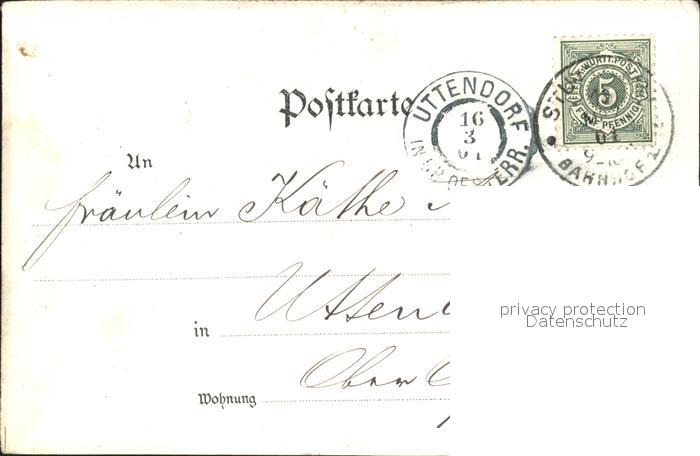 Postkarte
UTTENDORF
16
3
01
IN OB. OESTERR.
K. WÜRTT. POST
5
FÜNF PFENNIG
BAHNHOF
An
Fräulein Käthe
in
Wohnung Ober
privacy protection
Datenschutz